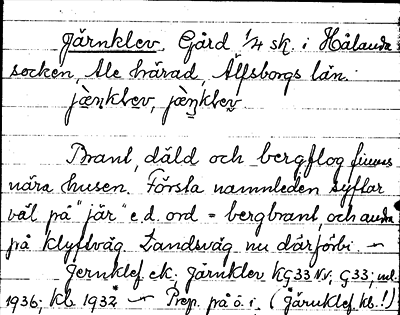 Järnklev. Gård 1/4 sk. i Hålanda
socken, Ale härad, Älfsborgs län.
jæ̀ṇklev, jæ̀ṇklev
Brant, däld och bergflog finnes
nära husen. Första namnleden syftar
väl på "jär" e.d. ord = bergbrant, och andra
på klyftväg. Landsväg nu därförbi. —
Jernklef ek; Järnklev KG33 NV, G33;
1936; kb 1932 — Prep. på ö. i. (Järnklef kb.!)